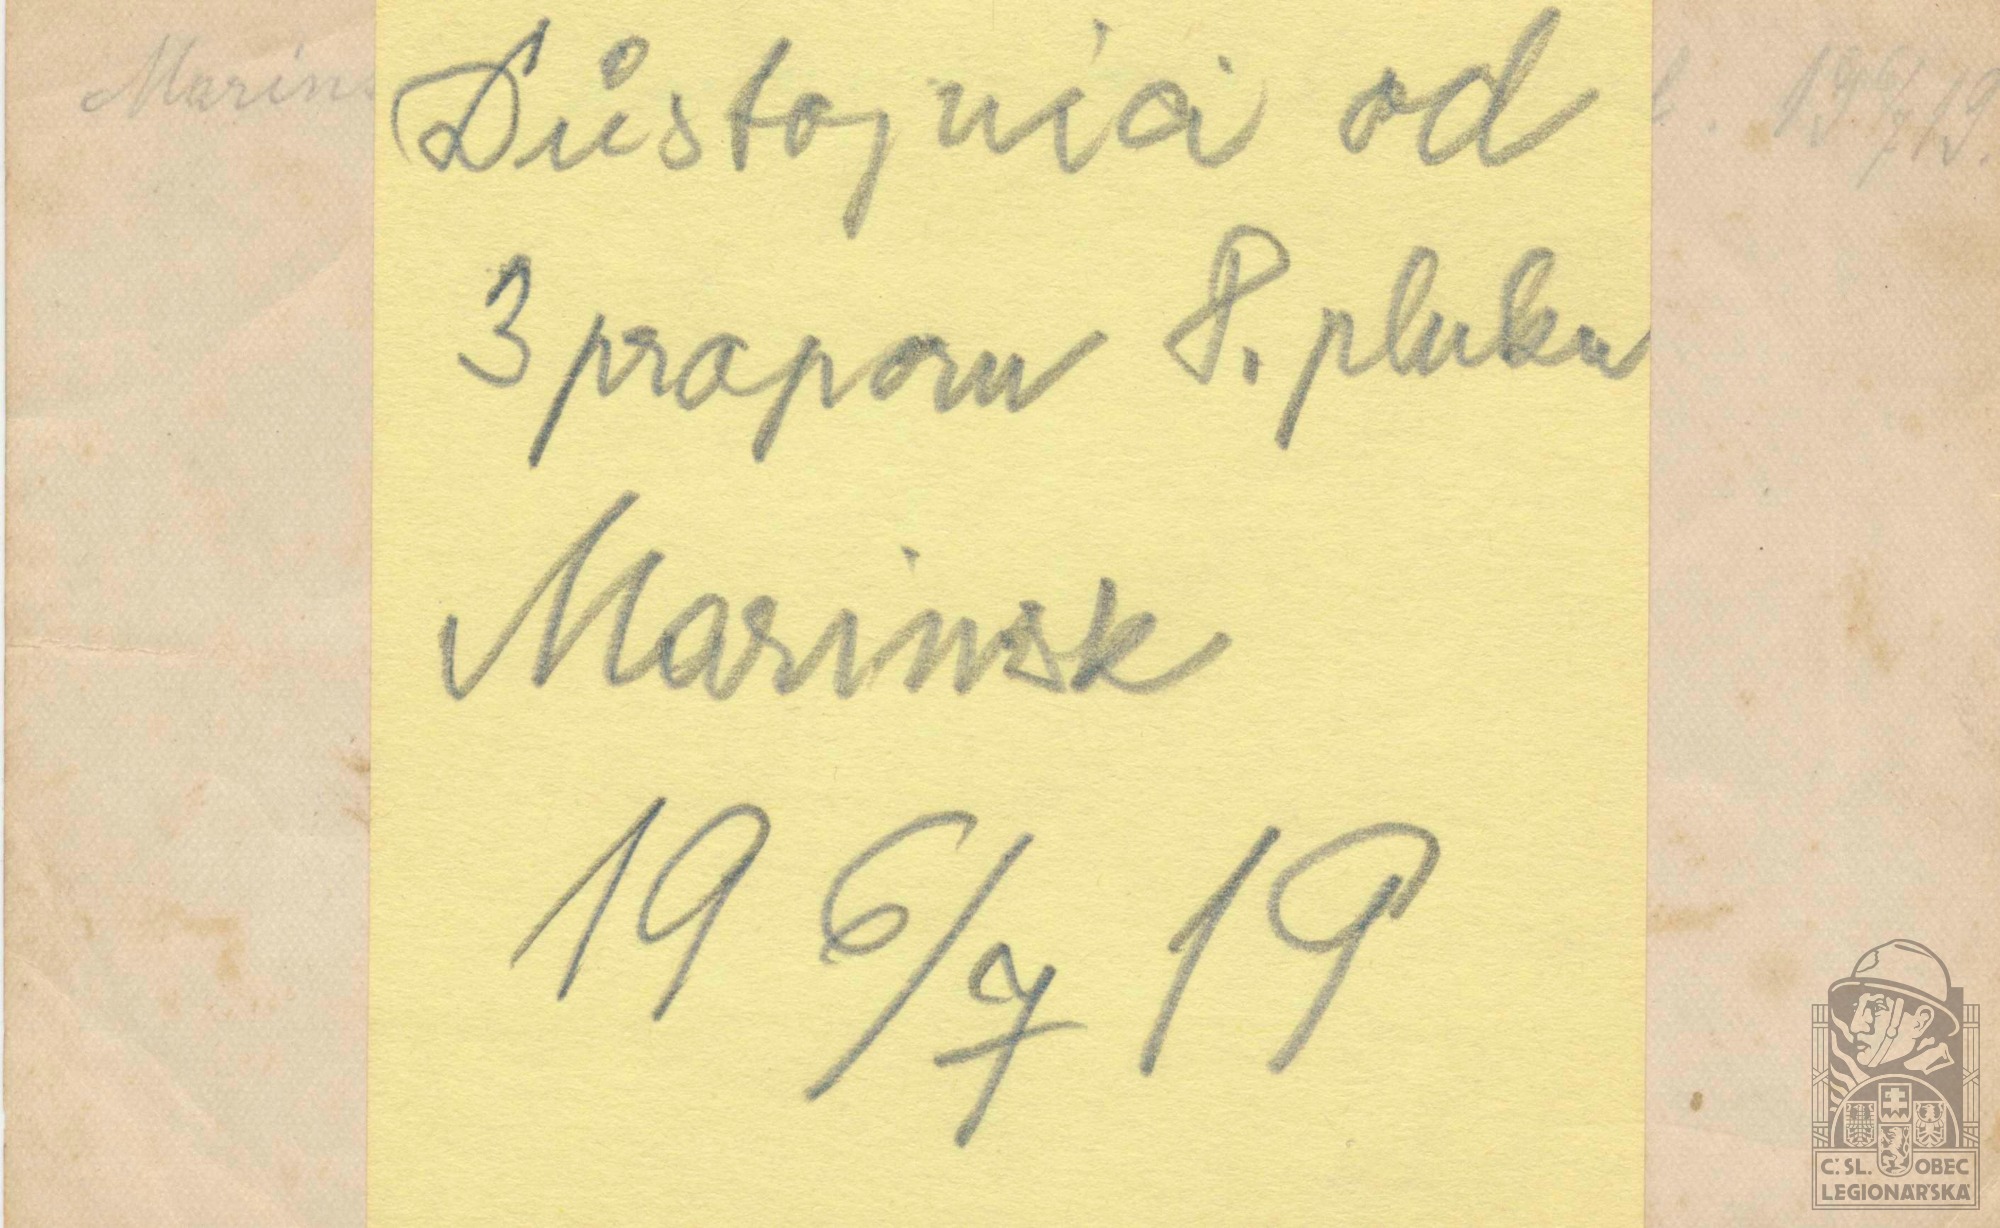 Marins
Důstojníci od
3 praporu 8. pluku
Marinsk
19 6/7 19
19 6/7 19.
Č.SL. OBEC
LEGIONÁŘSKÁ